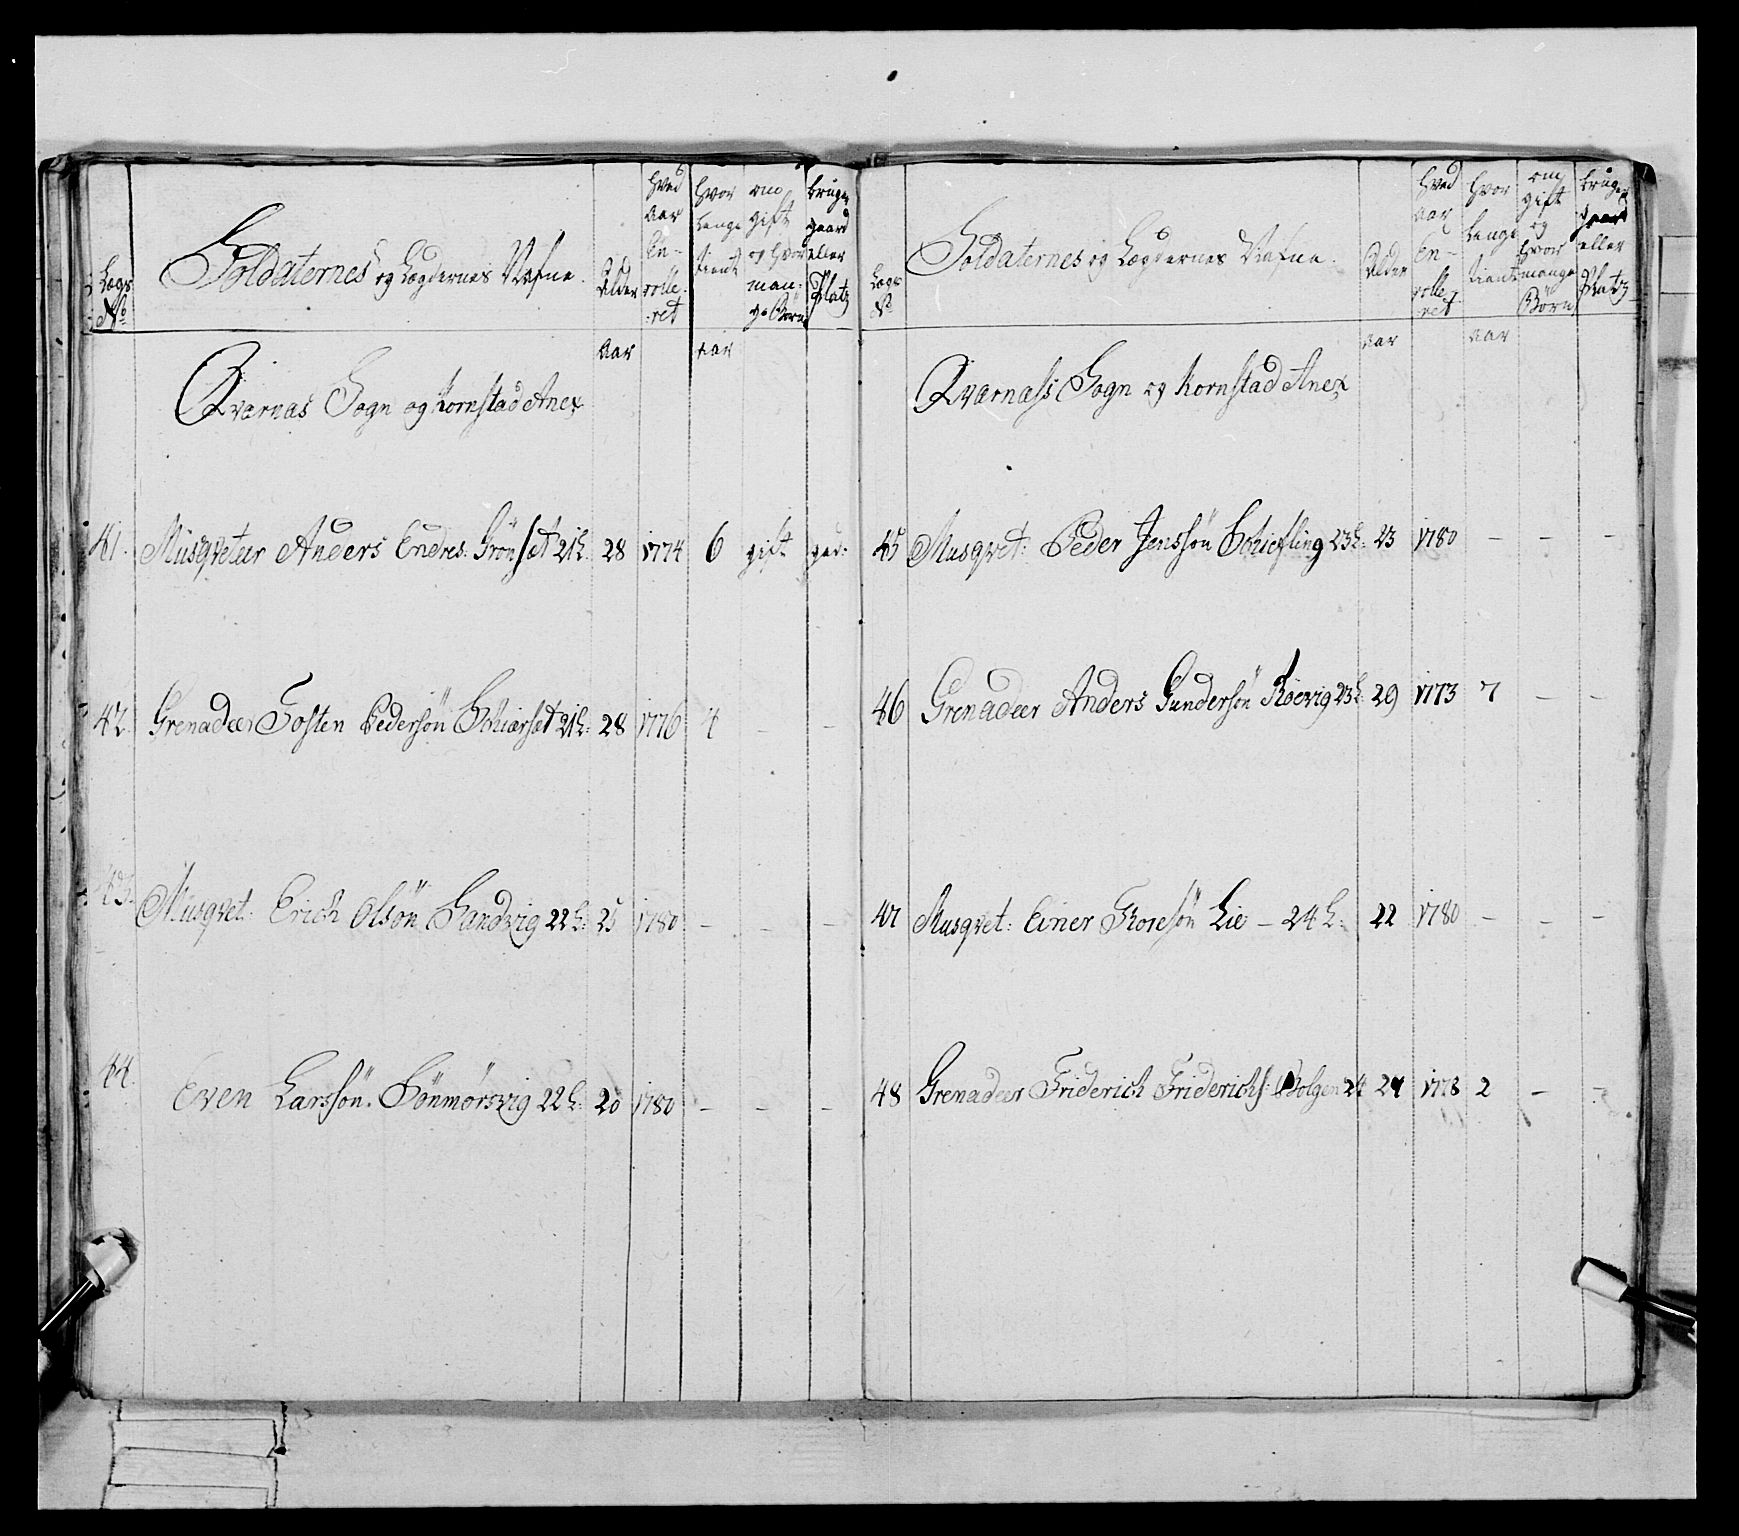 Lægs No | Soldaternes og Lægdernes Nafne. | Alder | hvad aar En-rolle-ret | hvor lenge tient | om gift og hvor man-ge Børn | bruger gaard eller Platz
aar | aar
Qvarnæs Sogn og Kornstad Anex
41. Musqveteer Anders Endres. Grönset 21 L. 28 1774 6 gift grd:
42. Grenadeer Tosten Pedersön Schiærset 21 L: 28 1776 4 - -
43. Musqvet: Erich Olsön Sandvig 22 L: 25 1780 - - -
44. Even Larssön. Sönmörsvig 22 L: 20 1780 - - -
Lægs No | Soldaternes og Lægdernes Nafne. | Alder | hvad aar En-rolle-ret | hvor lenge tient | om gift og hvor mange Börn | bruger gaard eller Platz
aar | aar
Qværnæss Sogn og Kornstad Anex
45 Musqvet: Peder Jenssön Schiefling 23 L: 23 1780 - - -
46 Grenadeer Anders Gundersön Röevig 23 L 29 1773 7 - -
47 Musqvet: Einer Thoresön Lie - 24 L: 22 1780 - - -
48 Grenadeer Friderich Friderichs: Bolgen 24 24 1778 2 - -